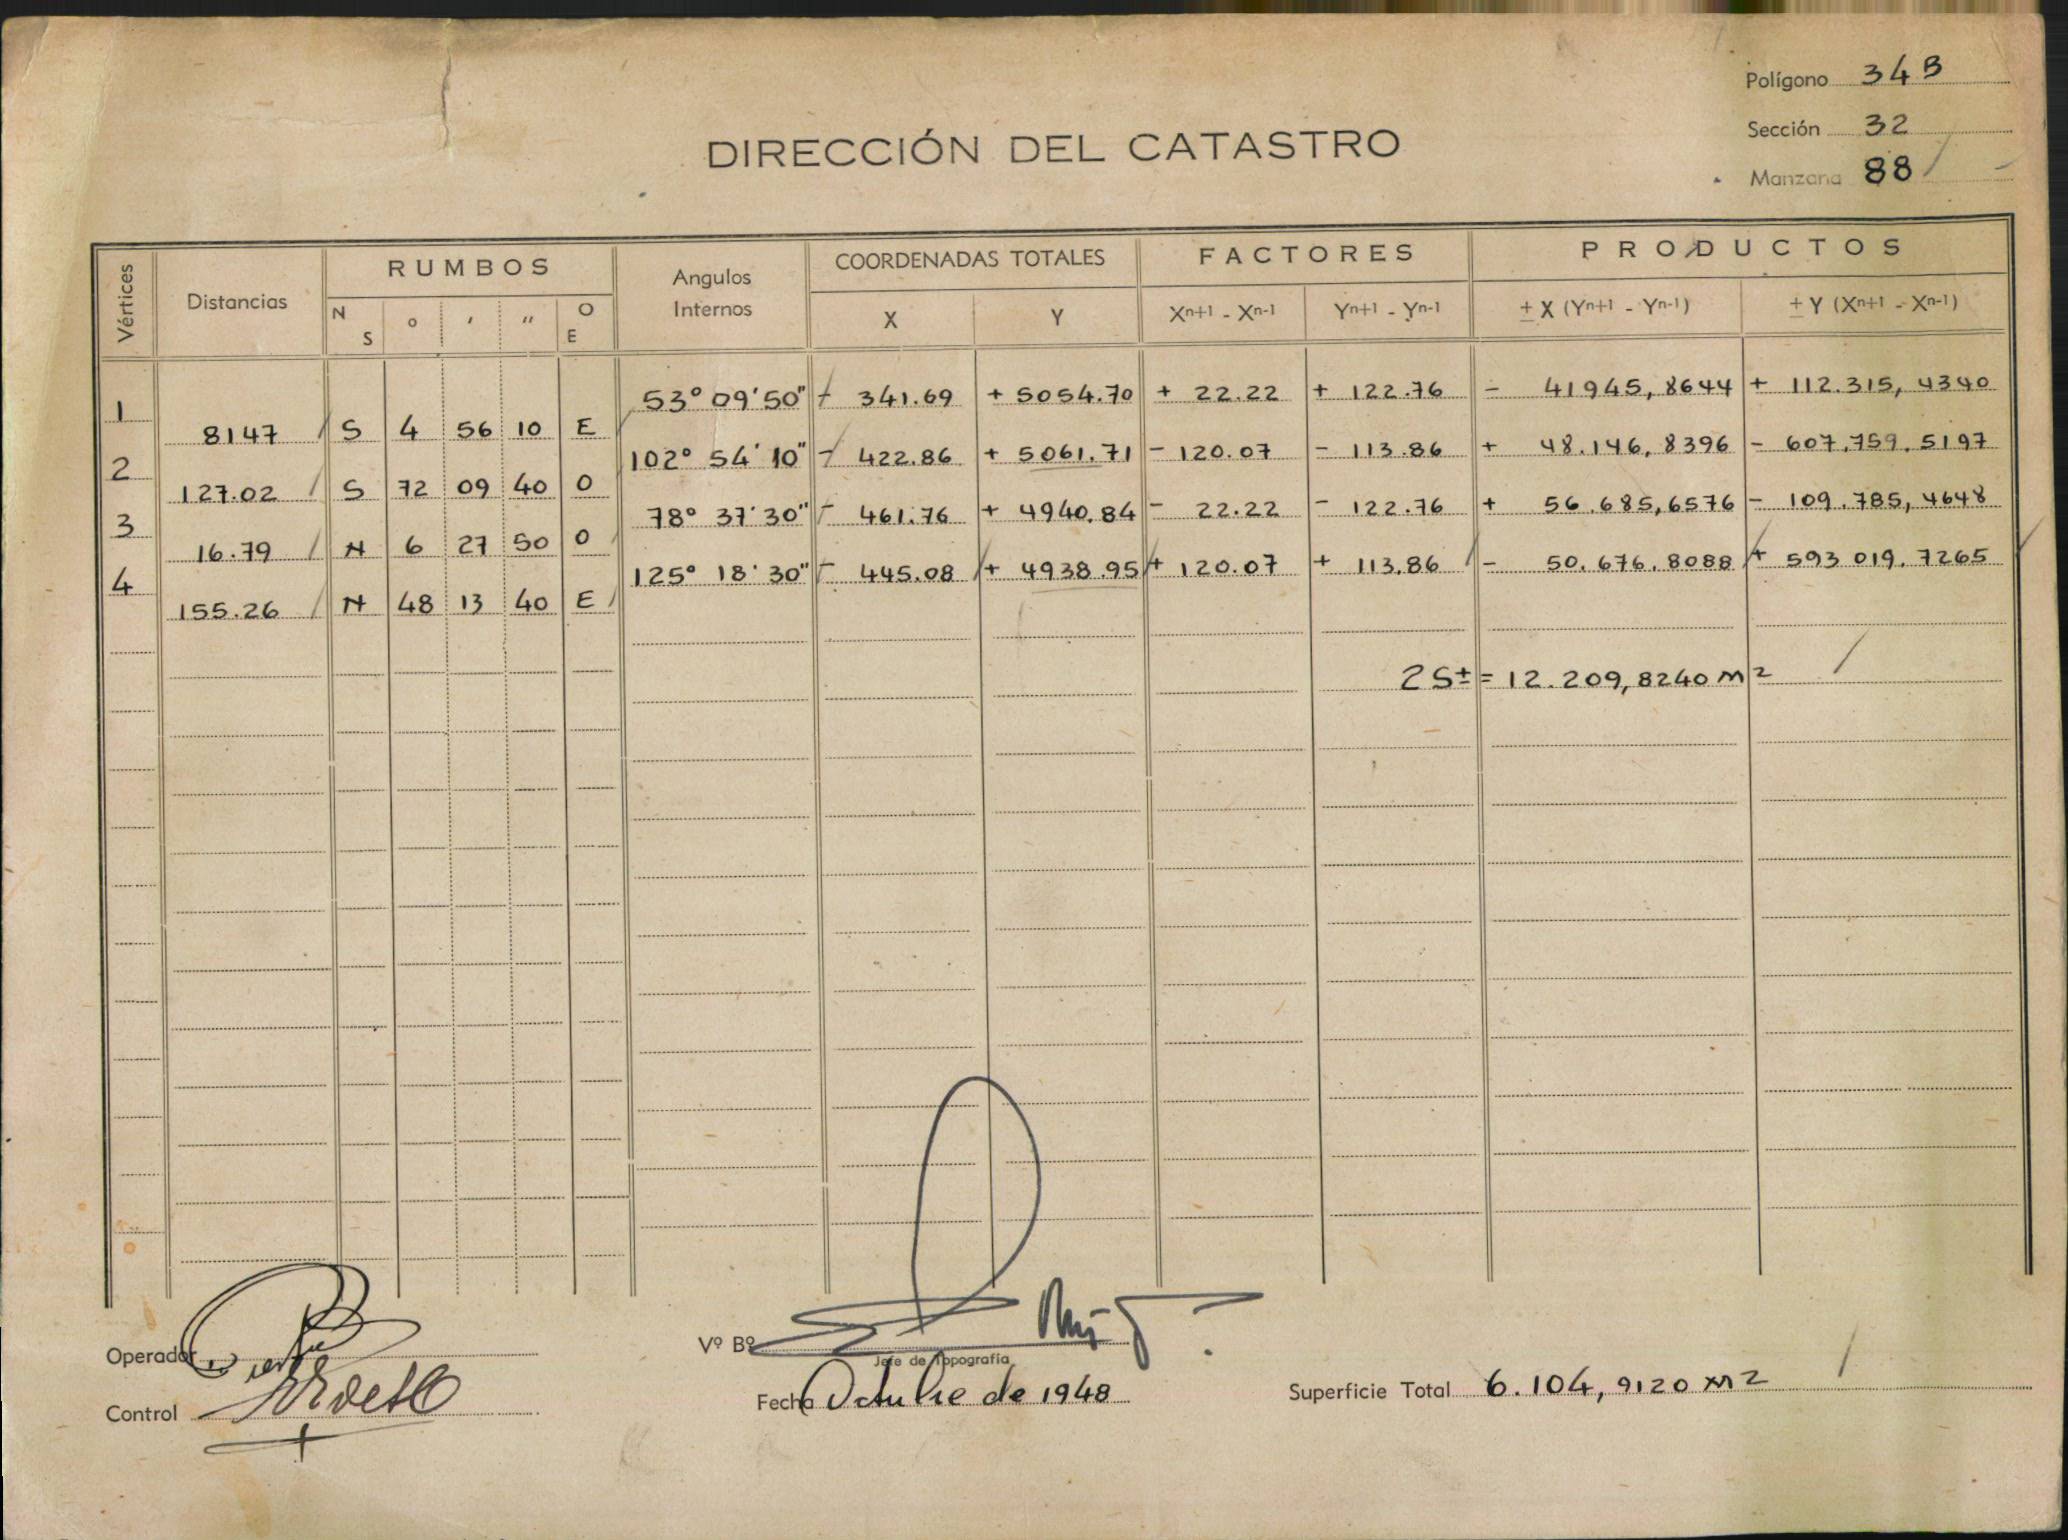 Polígono 34B
DIRECCIÓN DEL CATASTRO
Sección 32
Manzana 88
Vértices Distancias RUMBOS N S o ' '' O E Angulos Internos COORDENADAS TOTALES X Y FACTORES Xn+1 - Xn-1 Yn+1 - Yn-1 PRODUCTOS ± X (Yn+1 - Yn-1) ± Y (Xn+1 - Xn-1)
1 53° 09' 50" - 341.69 + 5054.70 + 22.22 + 122.76 - 41945,8644 + 112.315,4340
8147 S 4 56 10 E
2 102° 54' 10" - 422.86 + 5061.71 - 120.07 - 113.86 + 48.146,8396 - 607.759.5197
127.02 S 72 09 40 O
3 78° 37' 30" - 461.76 + 4940.84 - 22.22 - 122.76 + 56.685,6576 - 109.785,4648
16.79 N 6 27 50 O
4 125° 18' 30" - 445.08 + 4938.95 + 120.07 + 113.86 - 50.676.8088 + 593 019.7265
155.26 N 48 13 40 E
2 S± = 12.209,8240 m2
Operador
Vº Bº
Jefe de Topografía
Control
Fecha Octubre de 1948
Superficie Total 6.104,9120 m2